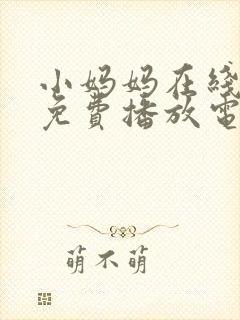 小妈妈在线
免費播放電
萌不萌